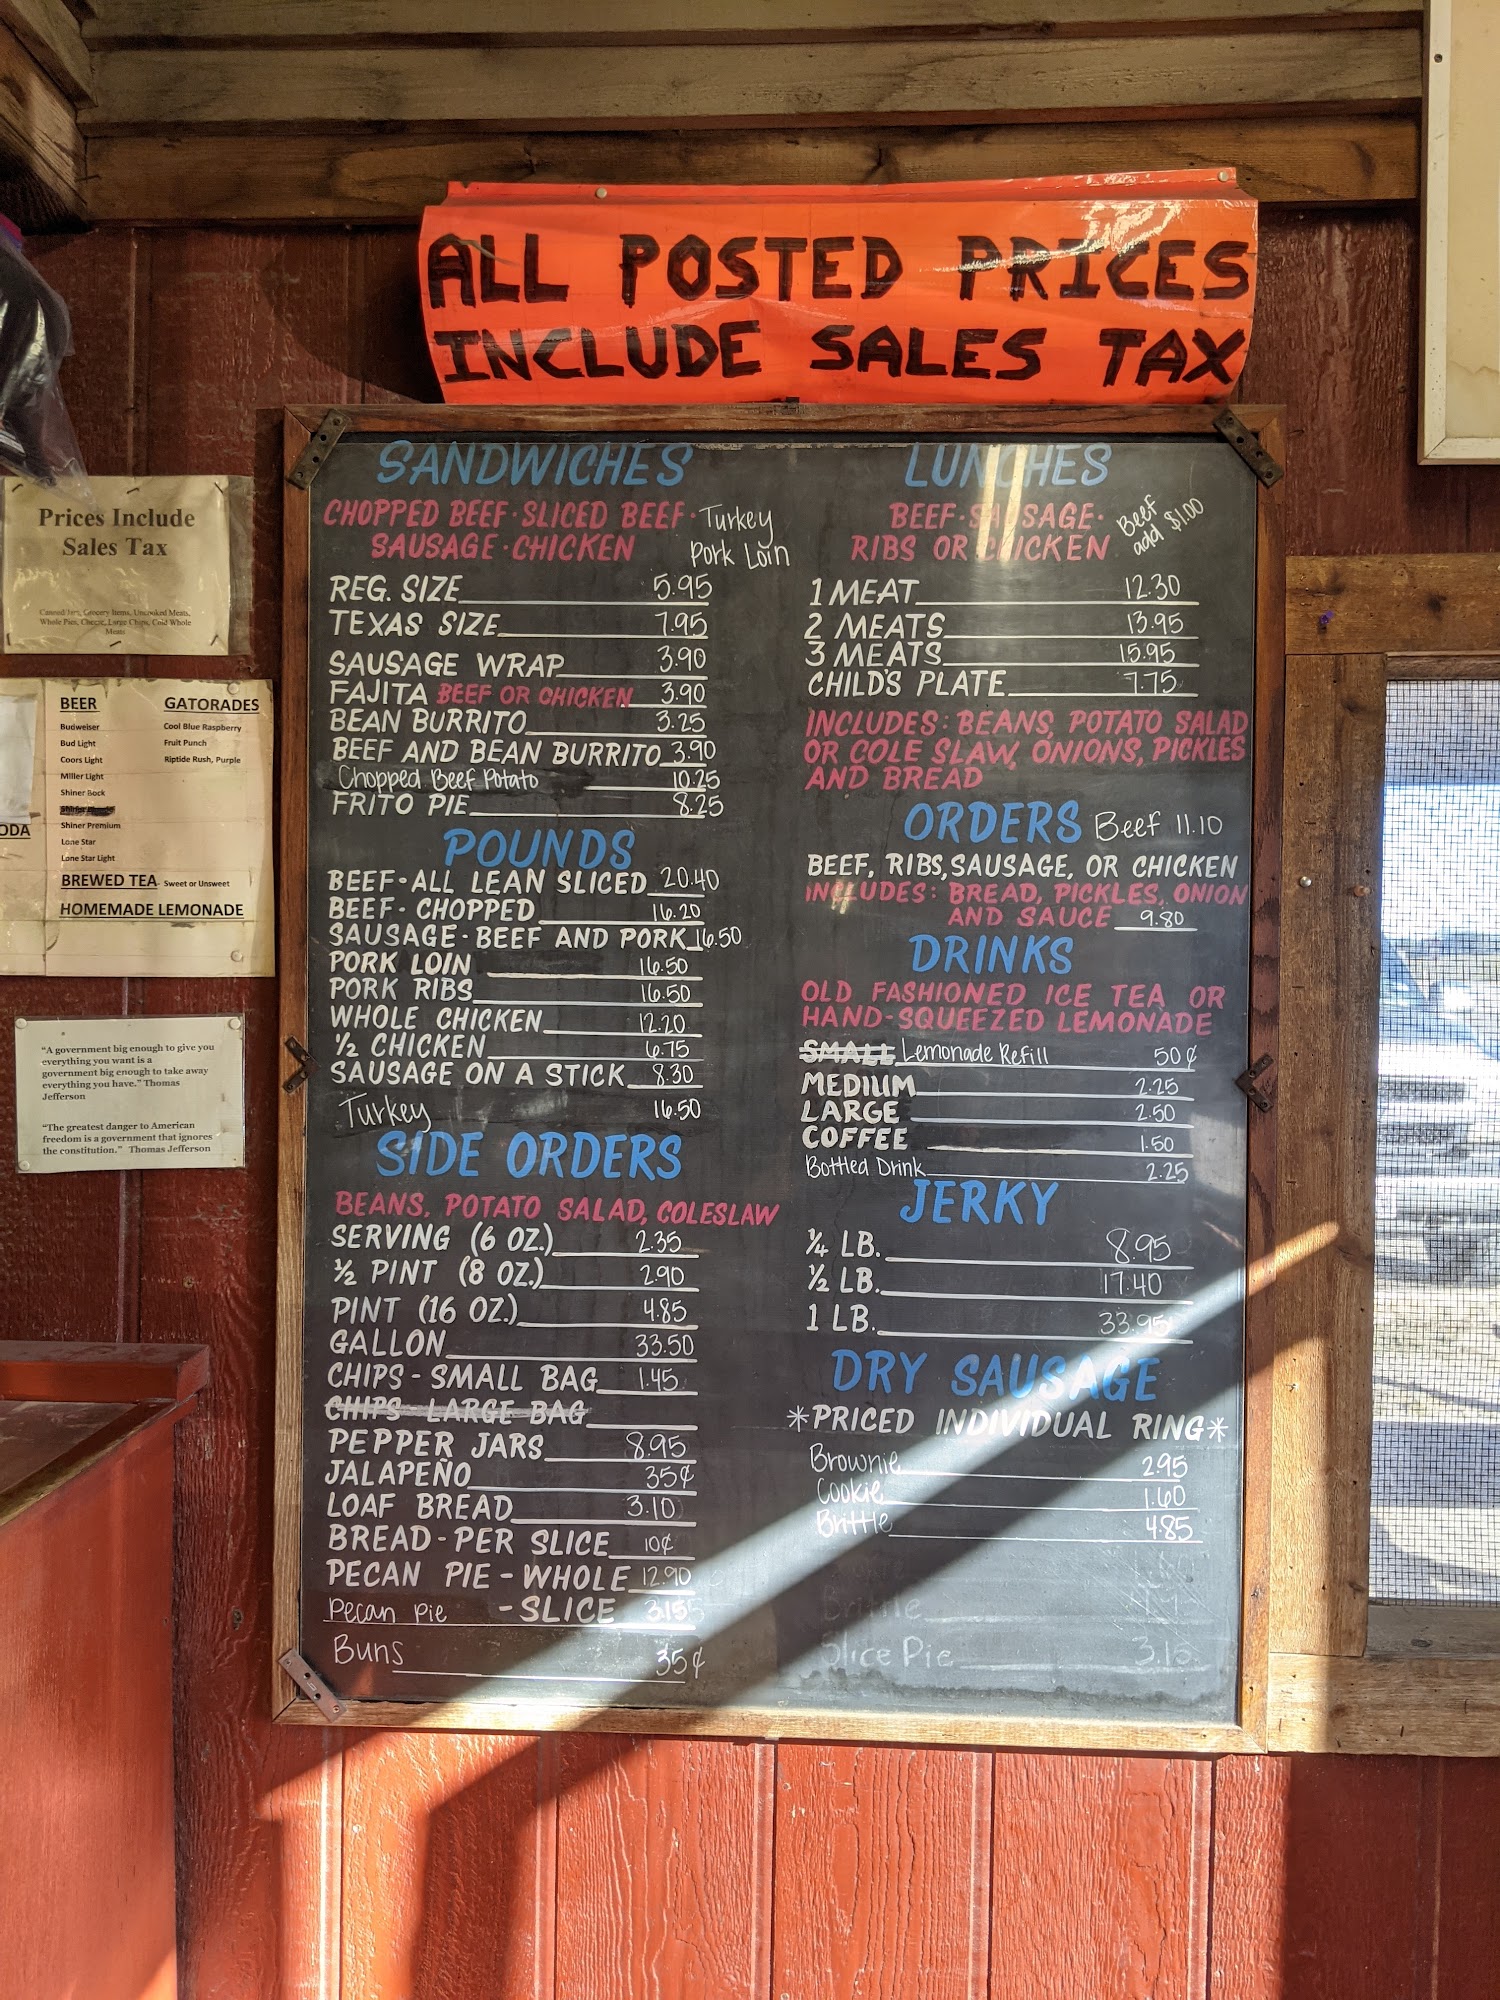 ALL POSTED PRICES
INCLUDE SALES TAX
Prices Include
Sales Tax
Canned Jars, Grocery Items, Uncooked Meats,
Whole Pies, Cheese, Large Chips, Cold Whole
Meats
ODA
BEER
Budweiser
Bud Light
Coors Light
Miller Light
Shiner Bock
Shiner Premium
Lone Star
Lone Star Light
GATORADES
Cool Blue Raspberry
Fruit Punch
Riptide Rush, Purple
BREWED TEA- Sweet or Unsweet
HOMEMADE LEMONADE
"A government big enough to give you
everything you want is a
government big enough to take away
everything you have." Thomas
Jefferson
"The greatest danger to American
freedom is a government that ignores
the constitution." Thomas Jefferson
SANDWICHES
CHOPPED BEEF·SLICED BEEF· Turkey
SAUSAGE·CHICKEN Pork Loin
REG. SIZE 5.95
TEXAS SIZE 7.95
SAUSAGE WRAP 3.90
FAJITA BEEF OR CHICKEN 3.90
BEAN BURRITO 3.25
BEEF AND BEAN BURRITO 3.90
Chopped Beef Potato 10.25
FRITO PIE 8.25
POUNDS
BEEF-ALL LEAN SLICED 20.40
BEEF-CHOPPED 16.20
SAUSAGE-BEEF AND PORK 16.50
PORK LOIN 16.50
PORK RIBS 16.50
WHOLE CHICKEN 12.20
½ CHICKEN 6.75
SAUSAGE ON A STICK 8.30
Turkey 16.50
SIDE ORDERS
BEANS, POTATO SALAD, COLESLAW
SERVING (6 OZ.) 2.35
½ PINT (8 OZ.) 2.90
PINT (16 OZ.) 4.85
GALLON 33.50
CHIPS-SMALL BAG 1.45
CHIPS-LARGE BAG
PEPPER JARS 8.95
JALAPEÑO 35¢
LOAF BREAD 3.10
BREAD-PER SLICE 10¢
PECAN PIE-WHOLE 12.90
Pecan Pie -SLICE 3.15
Buns 35¢
LUNCHES
BEEF·SAUSAGE·
RIBS OR CHICKEN
Beef
add $1.00
1 MEAT 12.30
2 MEATS 13.95
3 MEATS 15.95
CHILD'S PLATE 7.75
INCLUDES: BEANS, POTATO SALAD
OR COLE SLAW, ONIONS, PICKLES
AND BREAD
ORDERS Beef 11.10
BEEF, RIBS, SAUSAGE, OR CHICKEN
INCLUDES: BREAD, PICKLES, ONION
AND SAUCE 9.80
DRINKS
OLD FASHIONED ICE TEA OR
HAND-SQUEEZED LEMONADE
SMALL Lemonade Refill 50¢
MEDIUM 2.25
LARGE 2.50
COFFEE 1.50
Bottled Drink 2.25
JERKY
¼ LB. 8.95
½ LB. 17.40
1 LB. 33.95
DRY SAUSAGE
*PRICED INDIVIDUAL RING*
Brownie 2.95
Cookie 1.60
Brittle 4.85
Brittle
Slice Pie 3.15